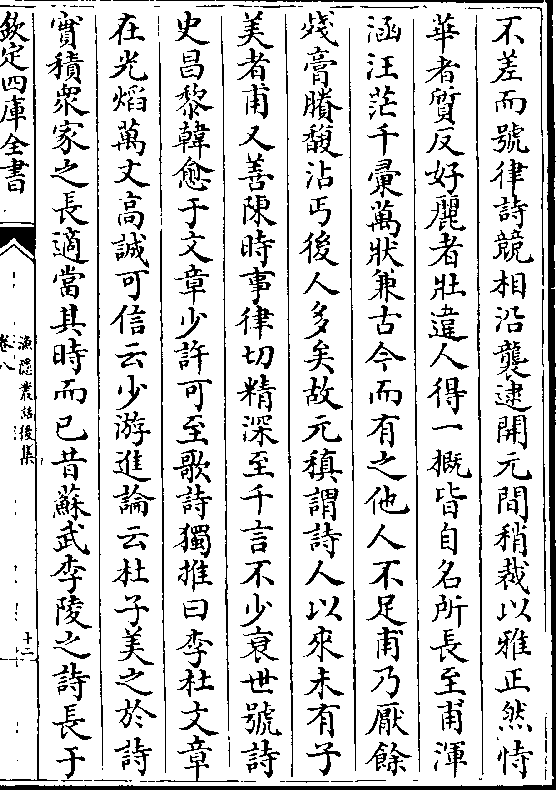 不差而號律詩競相沿襲逮開元間稍裁以雅正然恃
華者質反好麗者壯違人得一概皆自名所長至甫渾
涵汪茫千彚萬狀兼古今而有之他人不足甫乃厭餘
殘膏賸馥沾丐後人多矣故元稹謂詩人以來未有子
美者甫又善陳時事律切精深至千言不少衰世號詩
史昌黎韓愈于文章少許可至歌詩獨推曰李杜文章
在光熖萬丈高誠可信云少游進論云杜子美之於詩
實積衆家之長適當其時而已昔蘇武李陵之詩長于
欽定四庫全書
漁隱叢話後集
卷八
十二